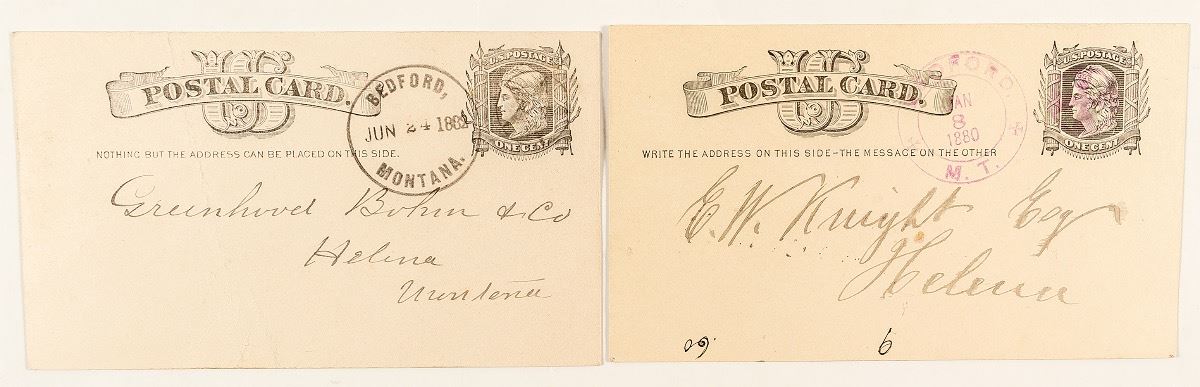 U.S. POSTAGE
US
POSTAL CARD.
ONE CENT
BEDFORD,
JUN 24 1882
MONTANA.
NOTHING BUT THE ADDRESS CAN BE PLACED ON THIS SIDE.
Greenhood Bohm & Co
Helena
Montana
U.S. POSTAGE
US
POSTAL CARD.
ONE CENT
DFORD
AN
8
1880
M. T.
WRITE THE ADDRESS ON THIS SIDE-THE MESSAGE ON THE OTHER
E. W. Knight Esq
Helena